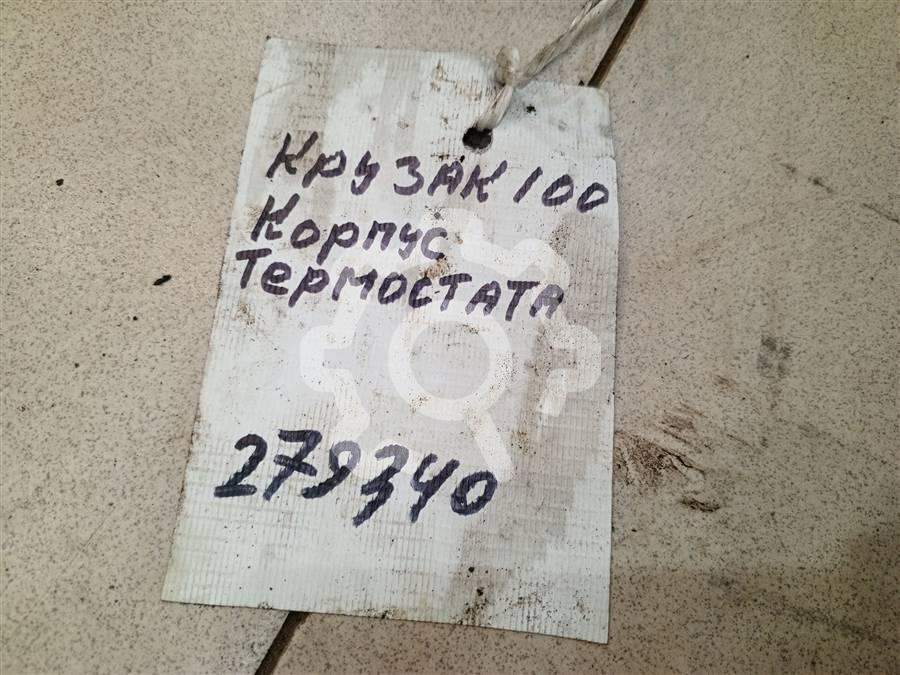 Крузак 100
Корпус
Термостата
279340